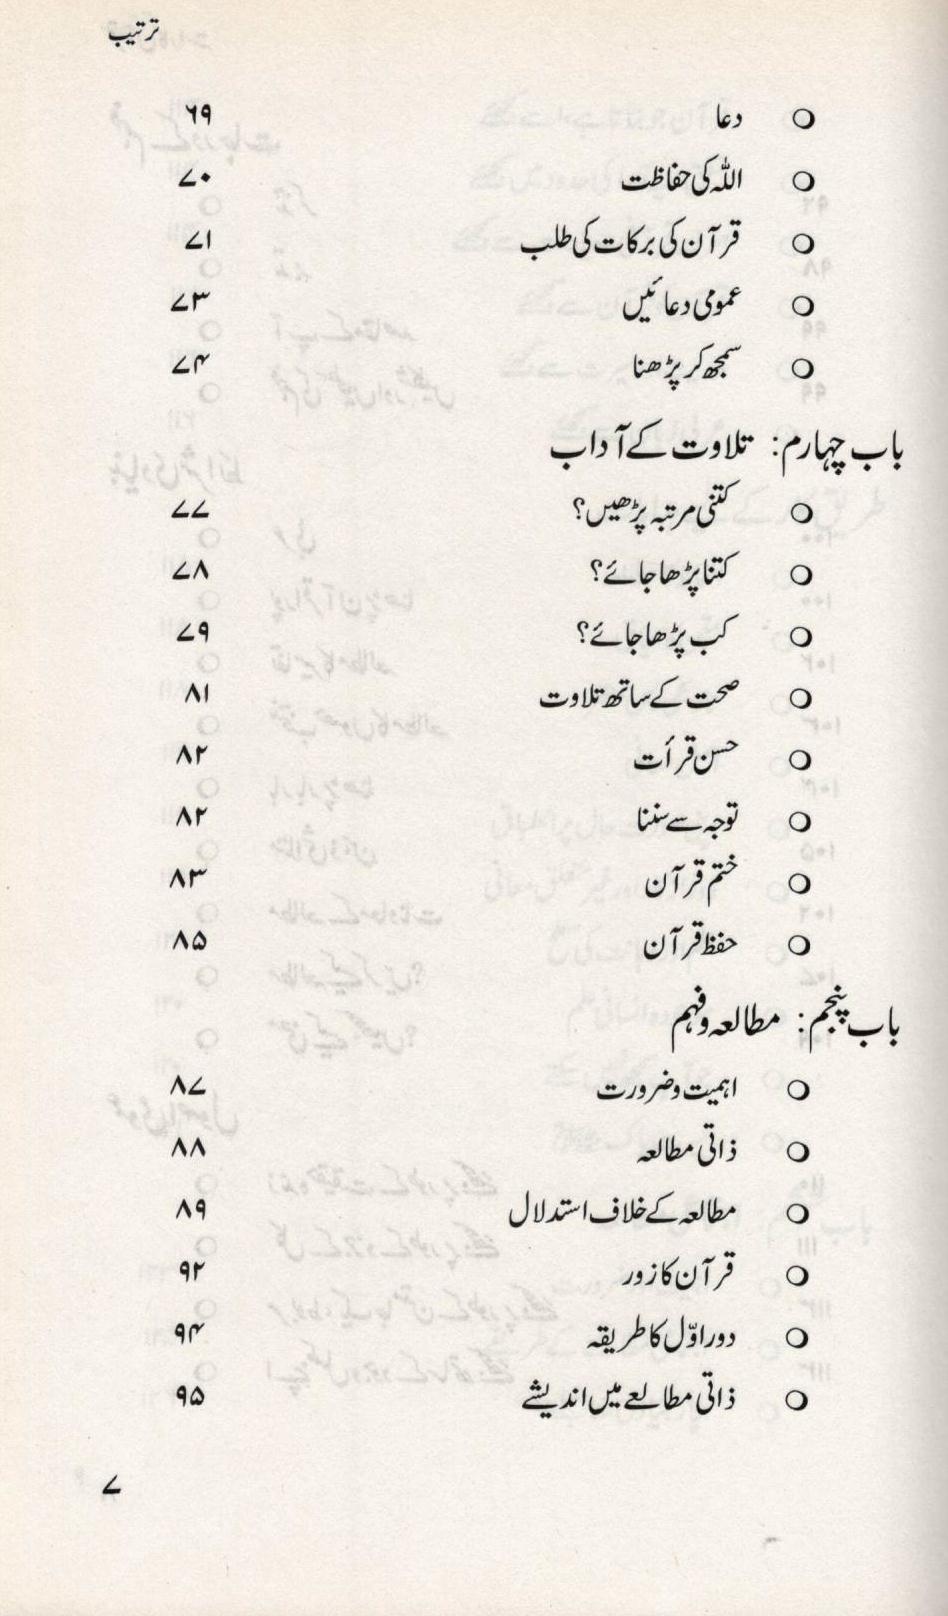 ترتیب
○ دعا ۶۹
○ اللہ کی حفاظت ۷۰
○ قرآن کی برکات کی طلب ۷۱
○ عمومی دعائیں ۷۳
○ سمجھ کر پڑھنا ۷۴
باب چہارم: تلاوت کے آداب
○ کتنی مرتبہ پڑھیں؟ ۷۷
○ کتنا پڑھا جائے؟ ۷۸
○ کب پڑھا جائے؟ ۷۹
○ صحت کے ساتھ تلاوت ۸۱
○ حسن قرأت ۸۲
○ توجہ سے سننا ۸۲
○ ختم قرآن ۸۳
○ حفظ قرآن ۸۵
باب پنجم: مطالعہ و فہم
○ اہمیت و ضرورت ۸۷
○ ذاتی مطالعہ ۸۸
○ مطالعہ کے خلاف استدلال ۸۹
○ قرآن کا زور ۹۲
○ دور اوّل کا طریقہ ۹۴
○ ذاتی مطالعے میں اندیشے ۹۵
۷